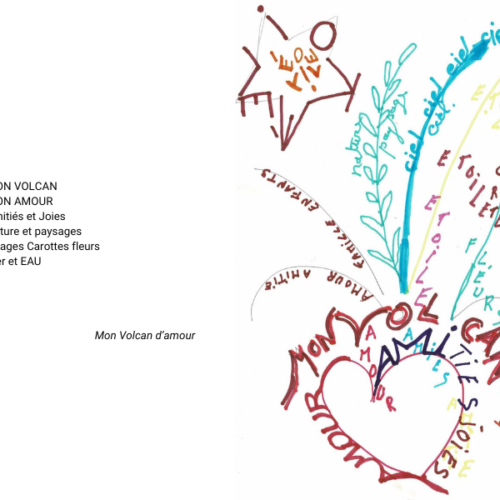 ON VOLCAN
ON AMOUR
nitiés et Joies
ture et paysages
ages Carottes fleurs
er et EAU
Mon Volcan d'amour
ETOILE
ciel ciel ciel ciel
ciel
nature paysage
FAMILLE ENFANTS
AMOUR AMITIE
ETOILE
ETOILE
FLEURS
MON VOLCAN
AMOUR
AMITIES JOIES
AMIES
AMOUR